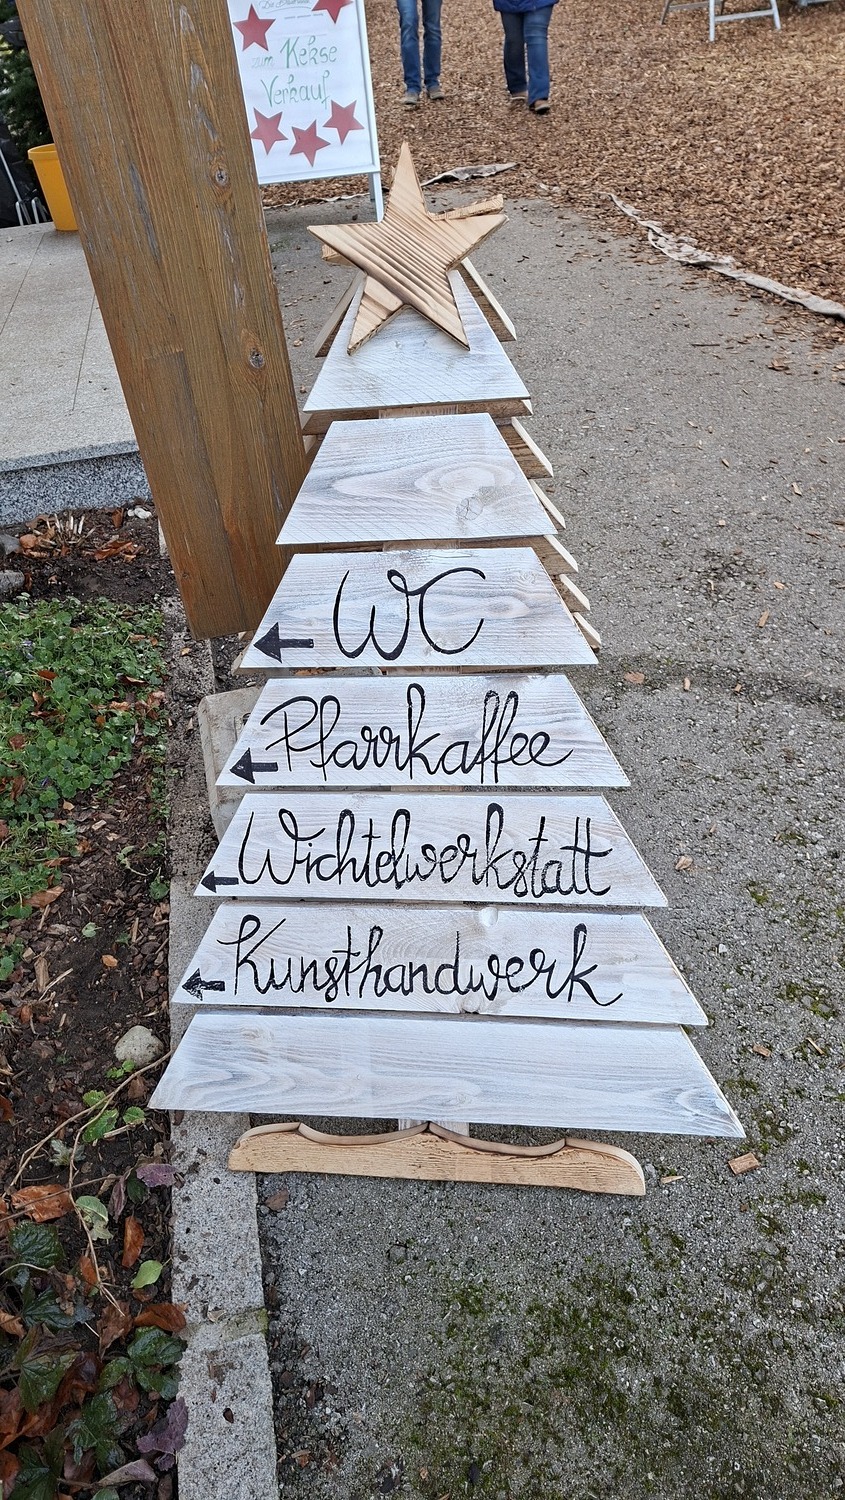 zum Kekse
Verkauf
WC
Pfarrkaffee
Wichtelwerkstatt
Kunsthandwerk